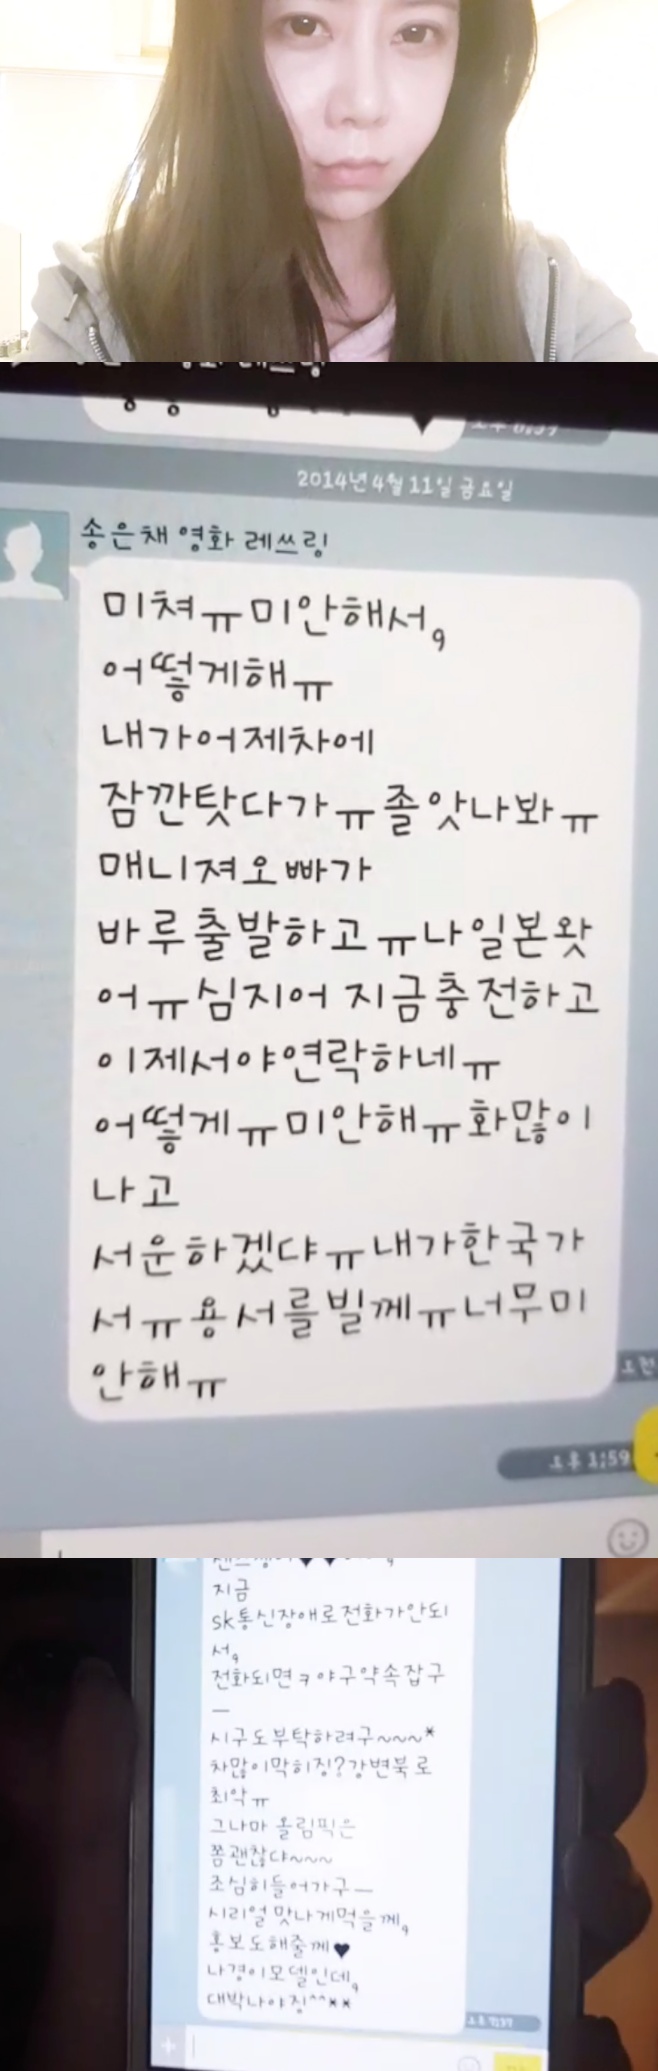 2014년 4월 11일 금요일
송은채 영화 레쓰링
미쳐ㅠ미안해서,
어떻게해ㅠ
내가어제차에
잠깐탓다가ㅠ졸앗나봐ㅠ
매니져오빠가
바루출발하고ㅠ나일본왓
어ㅠ심지어 지금충전하고
이제서야연락하네ㅠ
어떻게ㅠ미안해ㅠ화많이
나고
서운하겠댜ㅠ내가한국가
서ㅠ용서를빌께ㅠ너무미
안해ㅠ
오전
오후 1:59
지금
sk통신장애로전화가안되
서,
전화되면ㅋ야구약속잡구
ㅡ
시구도부탁하려구~~~*
차많이막히징?강변북로
최악ㅠ
그나마 올림픽은
쫌괜찮댜~~~
조심히들어가구ㅡ
시리얼맛나게먹을께,
홍보도해줄께♥
나경이모델인데,
대박나야징^^**